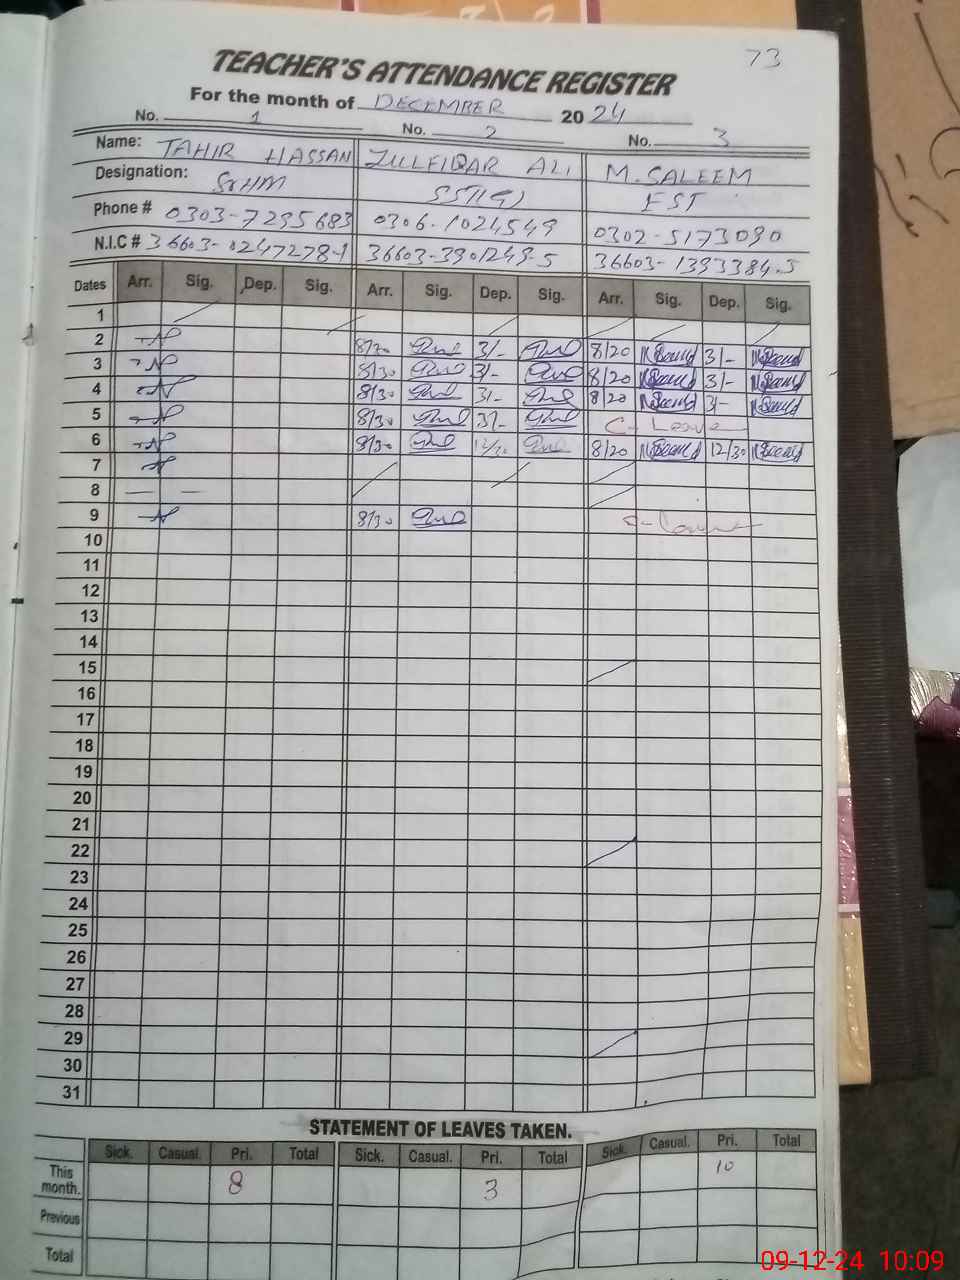 73
TEACHER'S ATTENDANCE REGISTER
For the month of DECEMBER 2024
No. 1 No. 2 No. 3
Name: TAHIR HASSAN ZULFIQAR ALI M. SALEEM
Designation: SrHM SST(G) EST
Phone # 0303-7295683 0306-1024549 0302-5173090
N.I.C # 36603-0247278-1 36603-3901249-5 36603-1393384-5
Dates Arr. Sig. Dep. Sig. Arr. Sig. Dep. Sig. Arr. Sig. Dep. Sig.
1
2 8/20 3/- 8/20 3/-
3 8/30 3/- 8/20 3/-
4 8/30 3/- 8/20 3/-
5 8/30 3/- C-Leave
6 8/30 12/30 8/20 12/30
7
8
9 8/30
10
11
12
13
14
15
16
17
18
19
20
21
22
23
24
25
26
27
28
29
30
31
STATEMENT OF LEAVES TAKEN.
Sick. Casual. Pri. Total Sick. Casual. Pri. Total Sick. Casual. Pri. Total
This month. 8 3 10
Previous
Total
09-12-24 10:09